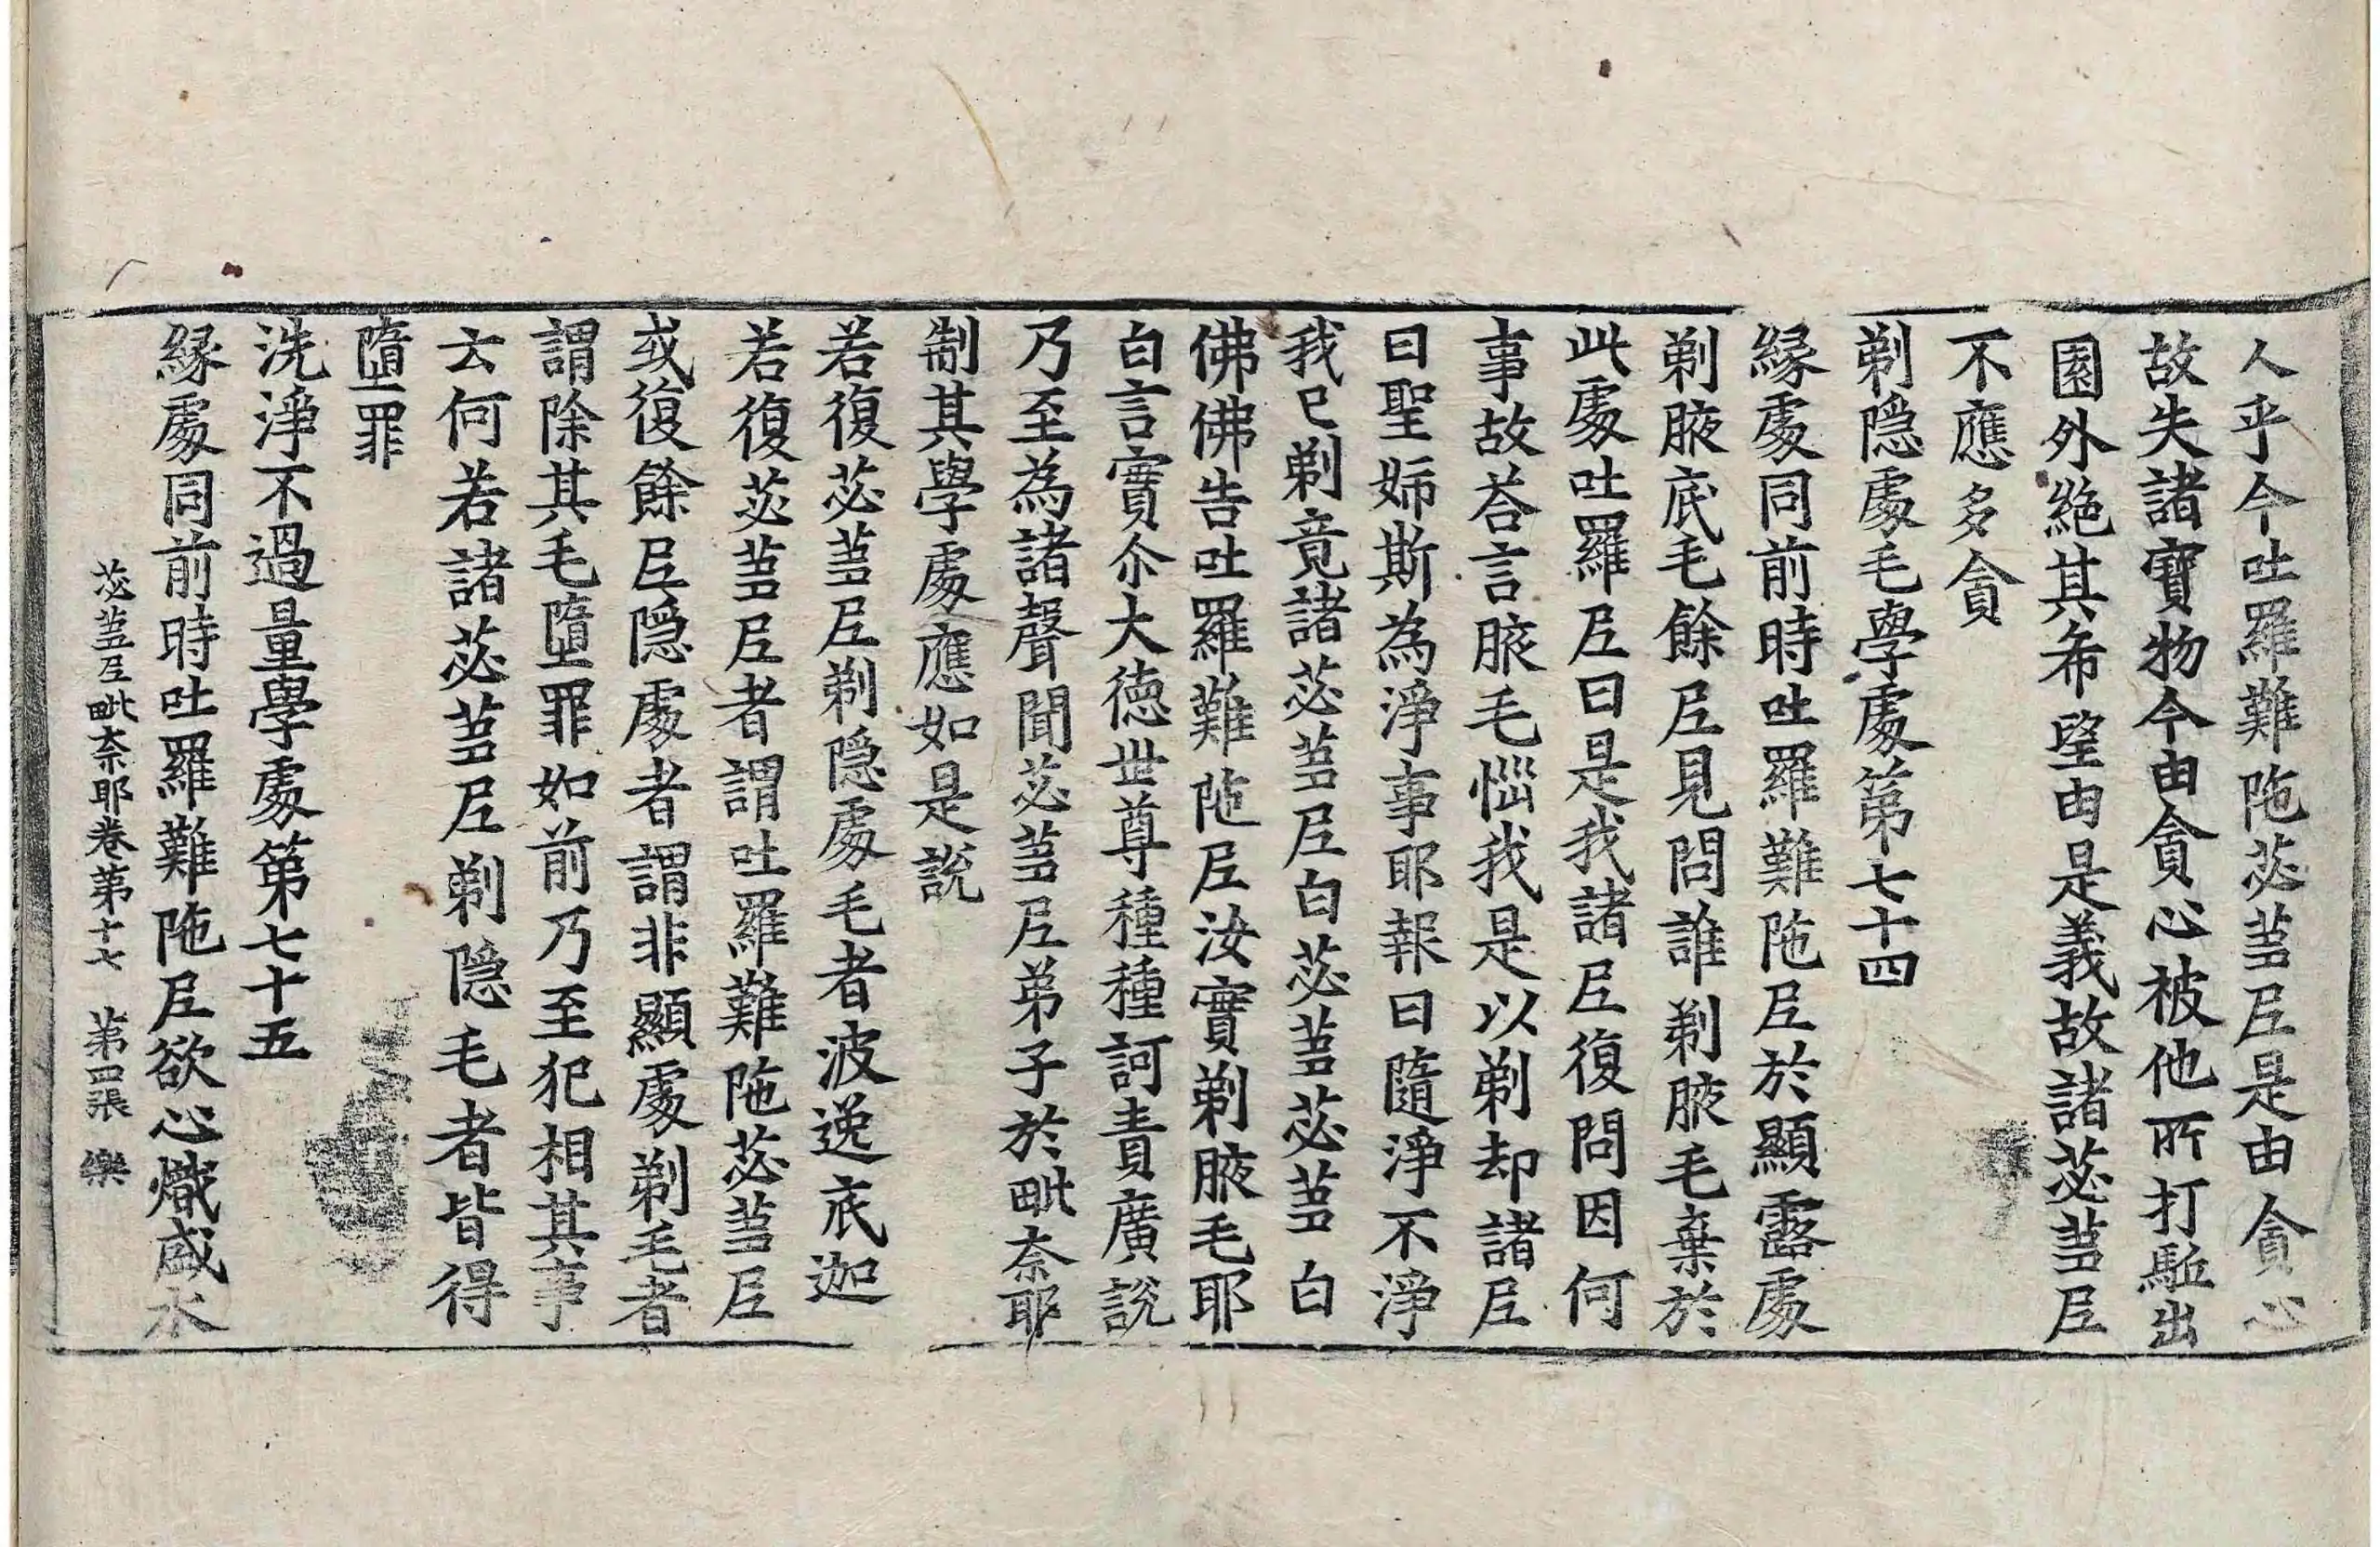 人乎今吐羅難陁苾蒭𡰱是由貪心
故失諸寶物今由貪心被他所打駈出
園外絶其希望由是義故諸苾蒭𡰱
不應多貪
剃隠處毛學處第七十四
緣處同前時吐羅難陁𡰱於顯露處
剃腋底毛餘𡰱見問誰剃腋毛棄於
此處吐羅𡰱曰是我諸𡰱復問因何
事故荅言腋毛惱我是以剃却諸𡰱
曰聖姊斯為淨事耶報曰隨淨不淨
我已剃竟諸苾蒭𡰱白苾蒭苾蒭白
佛佛告吐羅難陁𡰱汝實剃腋毛耶
白言實尒大德世尊種種訶責廣說
乃至為諸聲聞苾蒭𡰱弟子於毗奈耶
制其學處應如是說
若復苾蒭𡰱剃隠處毛者波逸底迦
若復苾蒭𡰱者謂吐羅難陁苾蒭𡰱
或復餘𡰱隠處者謂非顯處剃毛者
謂除其毛墮罪如前乃至犯相其事
云何若諸苾蒭𡰱剃隠毛者皆得
墮罪
洗淨不過量學處第七十五
緣處同前時吐羅難陁𡰱欲心熾盛水
苾蒭𡰱毗奈耶卷第十七　第四張　樂